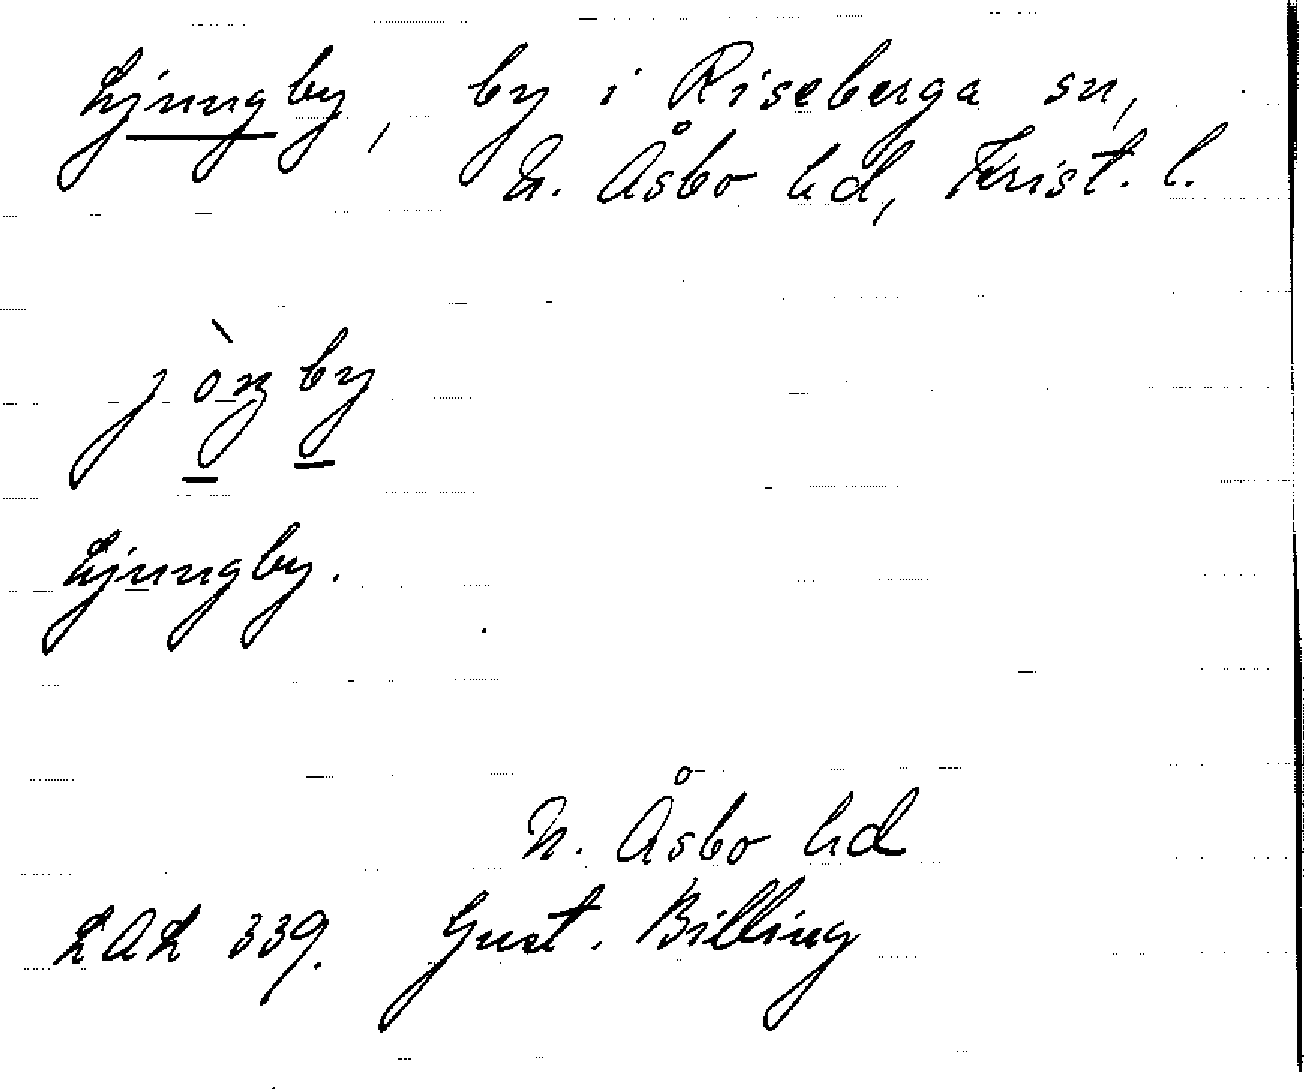 Ljungby, by i Riseberga sn,
N. Åsbo hd, Krist. l.
jòŋby
Ljungby.
N. Åsbo hd
LAL 339. Gust. Billing